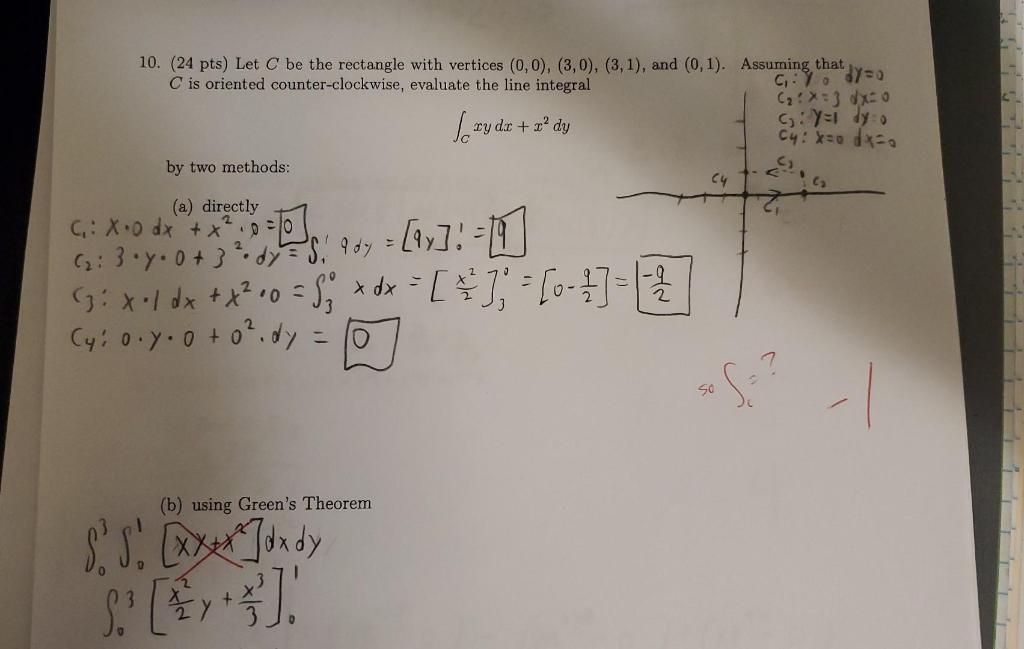 10. (24 pts) Let C be the rectangle with vertices (0, 0), (3, 0), (3, 1), and (0, 1). Assuming that
C is oriented counter-clockwise, evaluate the line integral
C₁: y 0 dy=0
C₂: x=3 dx=0
C₃: y=1 dy=0
C₄: x=0 dx=0
∫_C xy dx + x² dy
by two methods:
C₄ C₃ C₂
C₁
(a) directly
C₁: x·0 dx + x²·0 = 0
C₂: 3·y·0 + 3²·dy = ∫₁¹ 9dy = [9y]₀¹ = 9
C₃: x·1 dx + x²·0 = ∫₃⁰ x dx = [x²/2]₃⁰ = [0-9/2] = -9/2
C₄: 0·y·0 + 0²·dy = 0
so ∫_C = ? -1
(b) using Green's Theorem
∫₀³ ∫₀¹ [xy+x²]dxdy
∫₀³ [x²/2 y + x³/3]₀¹